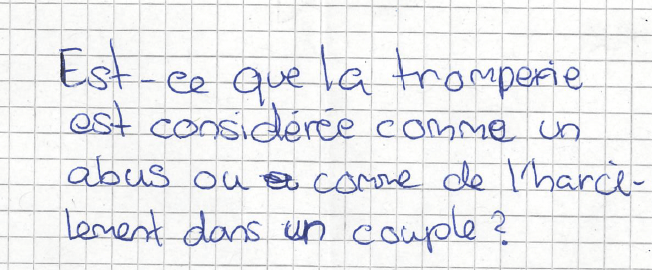 Est-ce que la tromperie
est considérée comme un
abus ou comme de l'harcè-
lement dans un couple ?